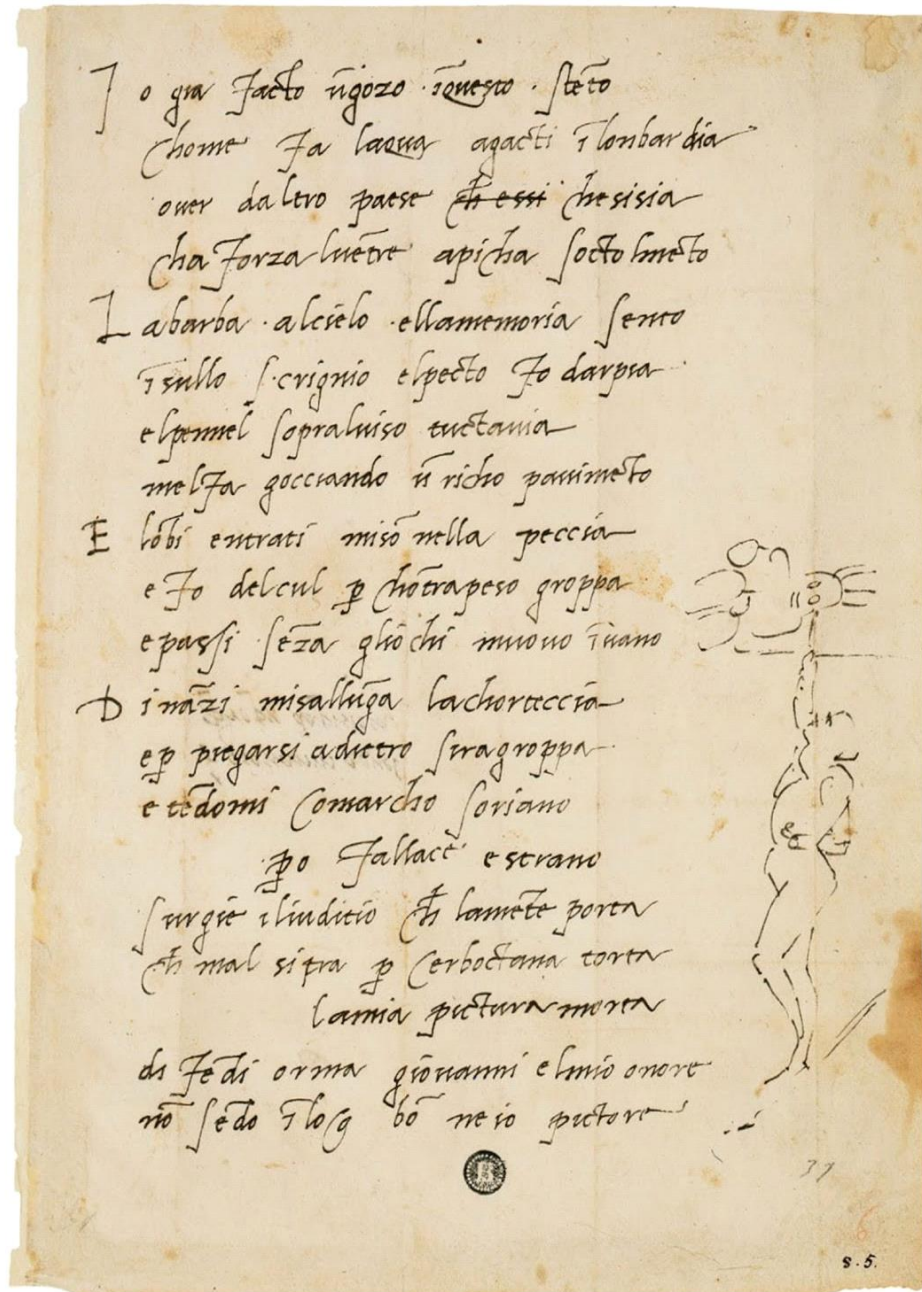 Io gia facto ūgozo īquesto stēto
chome fa laqua agacti ī lonbardia
over daltro paese ch̄ essi chesisia
cha forza lvētre apicha socto lmēto
La barba alcielo ellamemoria sento
īsullo scrignio elpecto fo darpia
elpennel sopralviso tuctavia
melfa gocciando ū richo pavimēto
E lōbi entrati misō nella peccia
e fo delcul p̱ chōtrapeso groppa
e passi sēza gliochi muovo īvano
Dināzi misallūga lachorteccia
e p̱ piegarsi adietro siragroppa
e tēdomi comarcho soriano
p̱o fallace e strano
surgie iliuditio ch̄ lamēte porta
ch̄ mal sitra p̱ cerboctana torta
lamia pictura morta
di fēdi orma giovanni elmio onore
nō sēdo ī loq bō ne io pictore
31
6
8.5.